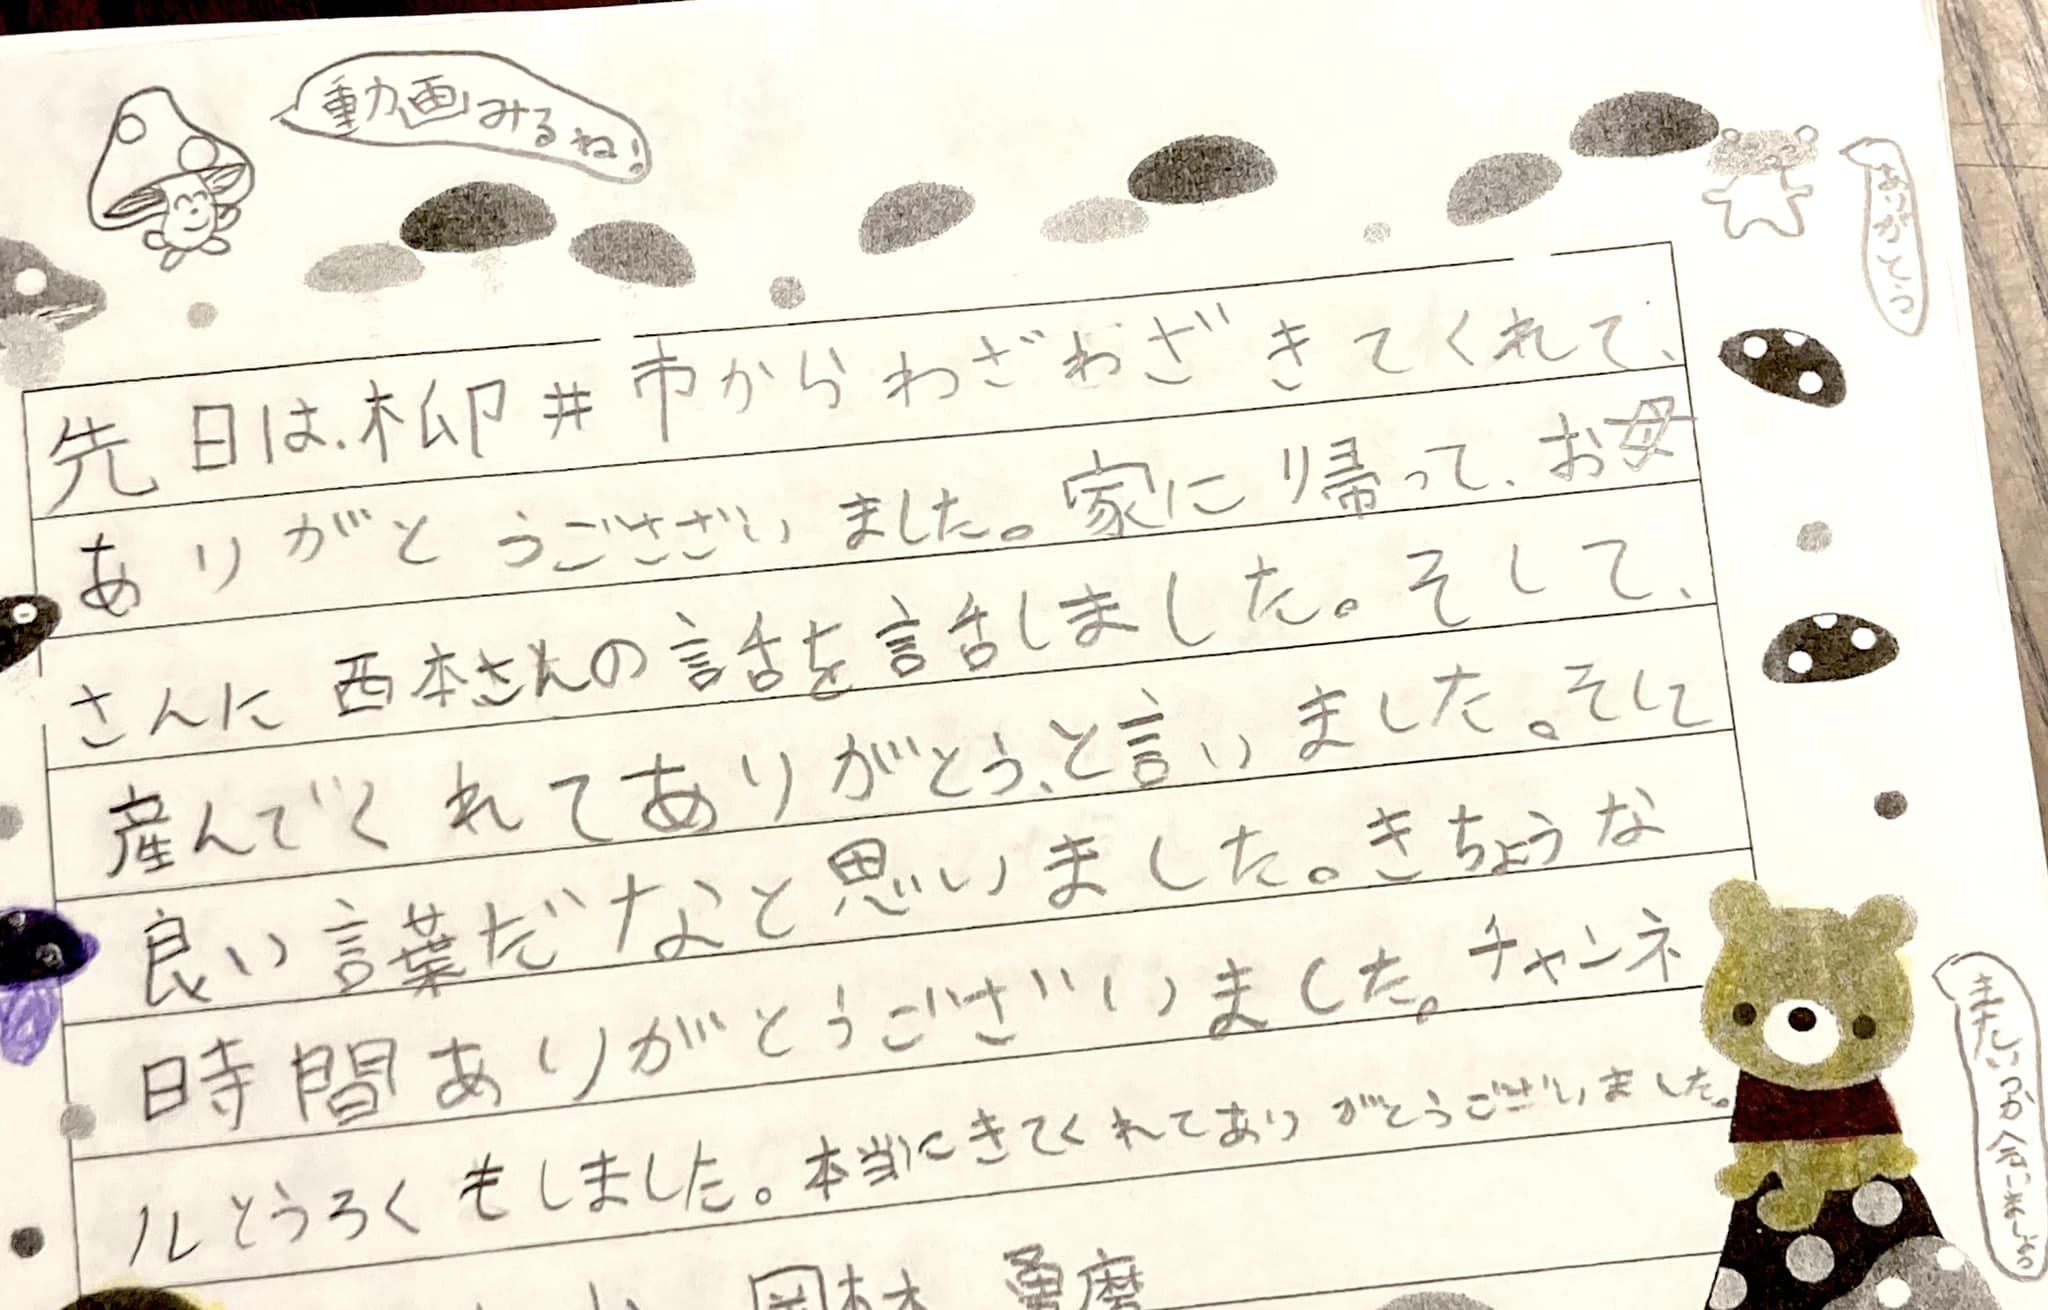 動画みるね!
ありがとう
先日は、柳井市からわざわざきてくれて、
ありがとうごさございました。家に帰って、お母
さんに西本さんの話を話しました。そして、
産んでくれてありがとう、と言いました。そして
良い言葉だなと思いました。きちょうな
時間ありがとうございました。チャンネ
ルとうろくもしました。本当にきてくれてありがとうございました。
またいつか会いましょう
岡林 勇磨